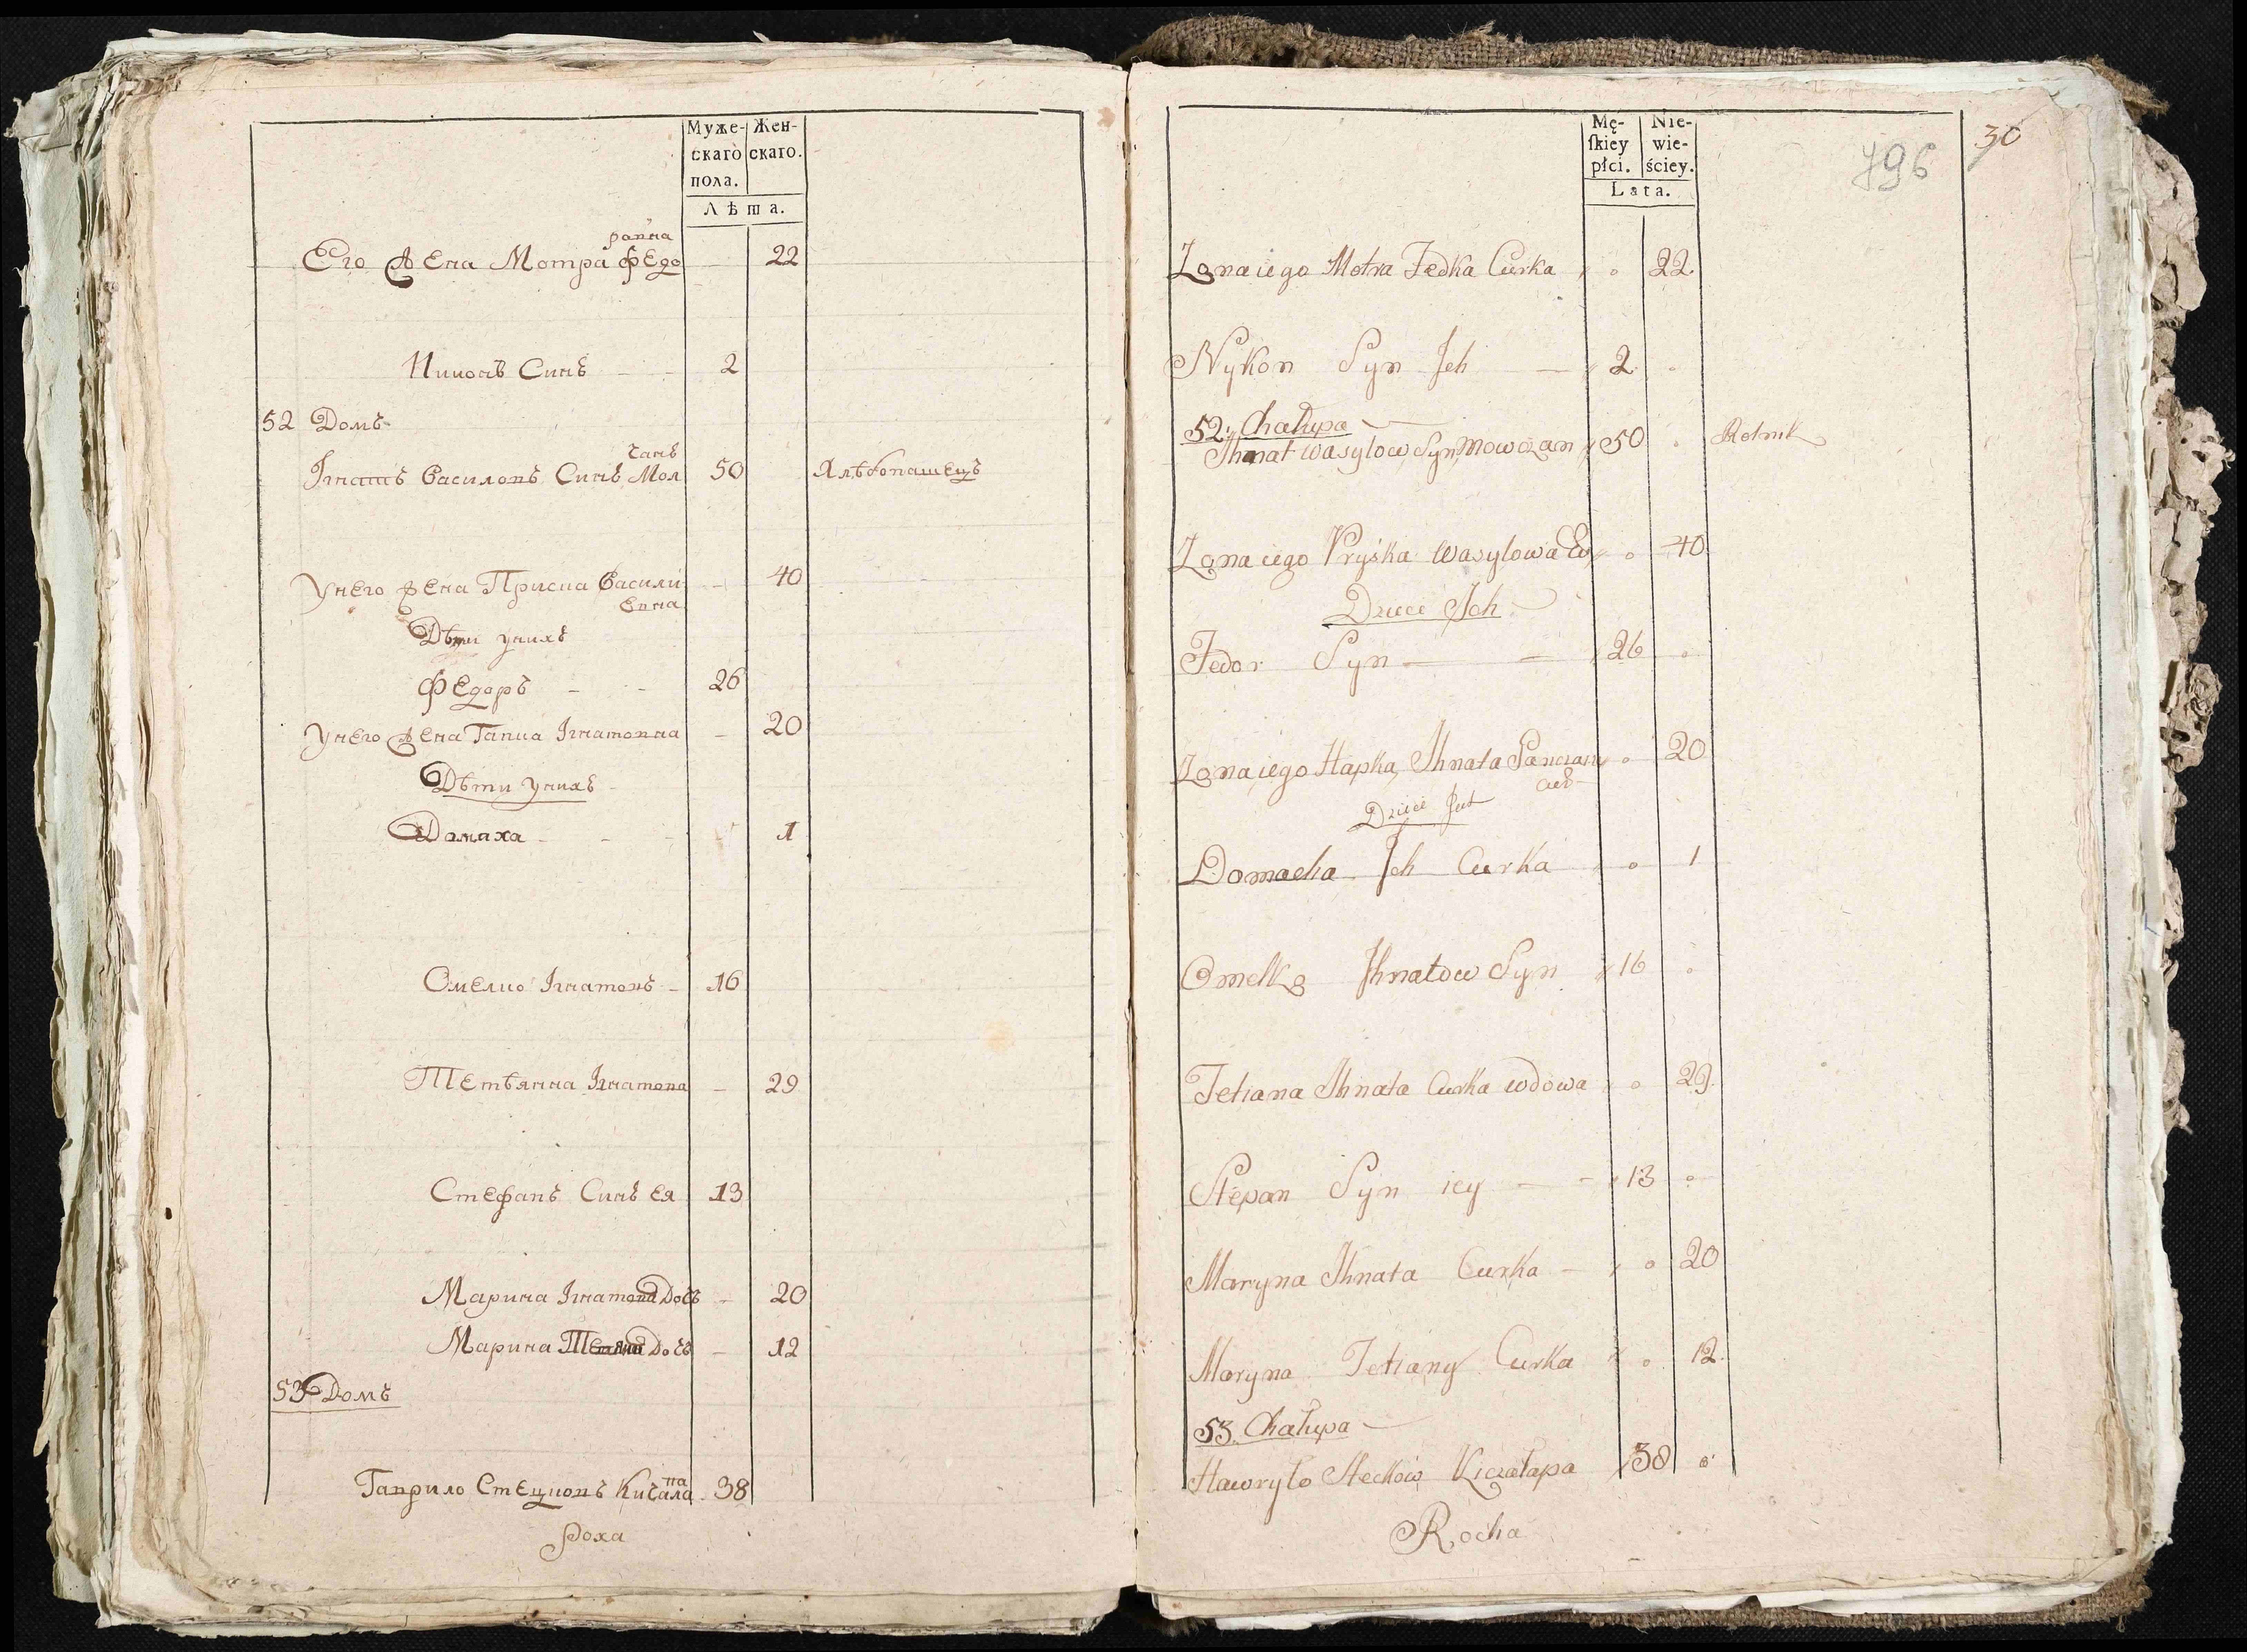 Муже-
скаго
пола.
Жен-
скаго.
Лѣта.
Его жена Мотра Федо
ровна
22
Никонъ Синъ - - 2
52 Домъ
Ігнатъ Василовъ Синъ Мол
чанъ
50
Хлѣбопашецъ
Унего жена Приска Васили
евна
- 40
Дѣти унихъ
Федоръ - - 26
Унего жена Гапка Ігнатовна - 20
Дѣти унихъ
Домаха - - - 1
Омелко Ігнатовъ - 16
Тетѣянна Ігнатова - 29
Стефанъ Синъ ея 13
Марина Ігнатова Дочъ - 20
Марина Дочъ - 12
53 Домъ
Гаврило Стецковъ Кичала
па
38
роха
Mę-
ſkiey
płci.
Nie-
wie-
ściey.
Lata.
796
30
Zona iego Motra Fedka Curka 22.
Nykon Syn Ich — 2
52. Chałupa
Ihnat Wasylow Syn Mowczan 50
Rolnik
Zona iego Pryska Wasylowa 40
Dzieci Ich
Fedor Syn — 26
Zona iego Hapka Ihnata 20
Dzieci Ich
Domacha Ich Curka 1
Omelko Ihnatow Syn 16
Tetiana Ihnata Curka wdowa 29.
Stepan Syn iey — 13
Maryna Ihnata Curka — 20
Maryna Tetiany Curka 12.
53. Chałupa
Hawryło Steckow Kiczałapa 38
Rocha